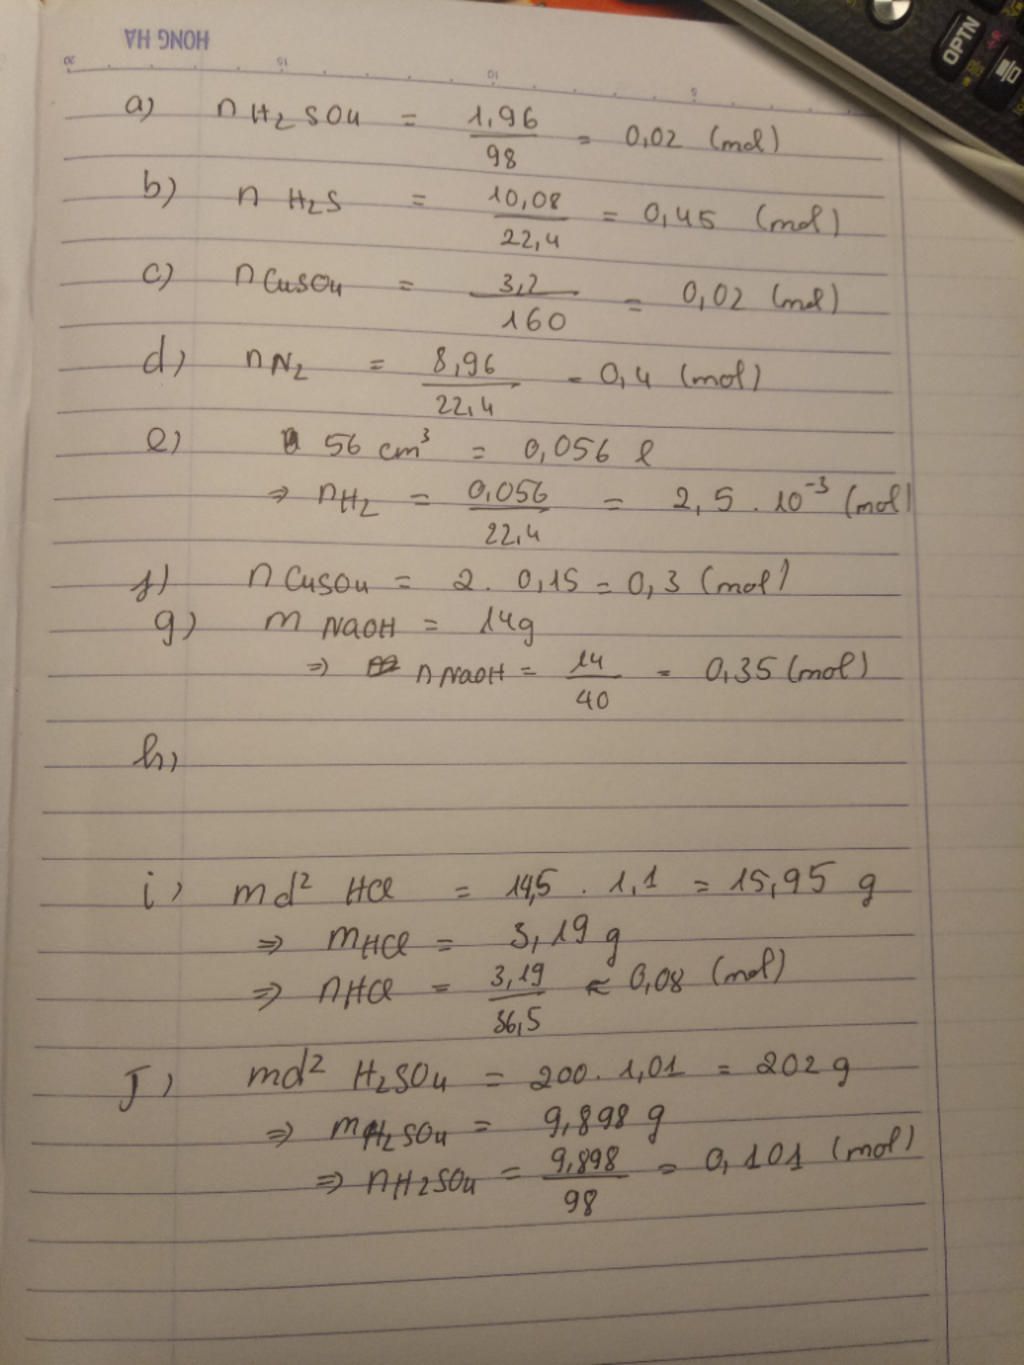 HONG HA
20 15 10 5
OPTN
a) n H2 SO4 = 1,96 / 98 = 0,02 (mol)
b) n H2S = 10,08 / 22,4 = 0,45 (mol)
c) n CuSO4 = 3,2 / 160 = 0,02 (mol)
d) n N2 = 8,96 / 22,4 = 0,4 (mol)
e) 56 cm³ = 0,056 l
⇒ nH2 = 0,056 / 22,4 = 2,5 . 10⁻³ (mol)
f) n CuSO4 = 2 . 0,15 = 0,3 (mol)
g) m NaOH = 14g
⇒ n NaOH = 14 / 40 = 0,35 (mol)
h)
i) md² HCl = 14,5 . 1,1 = 15,95 g
⇒ mHCl = 3,19 g
⇒ nHCl = 3,19 / 36,5 ≈ 0,08 (mol)
J) md² H2SO4 = 200 . 1,01 = 202 g
⇒ mH2SO4 = 9,898 g
⇒ nH2SO4 = 9,898 / 98 = 0,101 (mol)